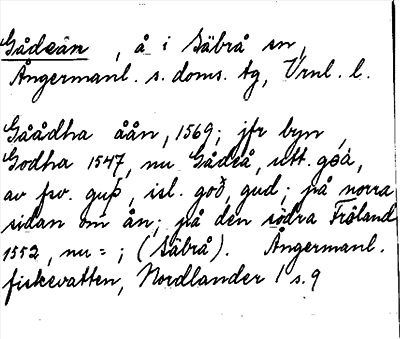 Gådeån, å i Säbrå sn,
Ångermanl. s. doms. tg, Vrnl. l.
Gåådha åån, 1569; jfr byn
Godha 1547, nu Gådeå, utt. goá,
av fsv. guþ, isl. goð, gud; på norra
sidan om ån; på den södra Fröland
1552, nu = ; (Säbrå). Ångermanl.
fiskevatten, Nordlander 1 s. 9